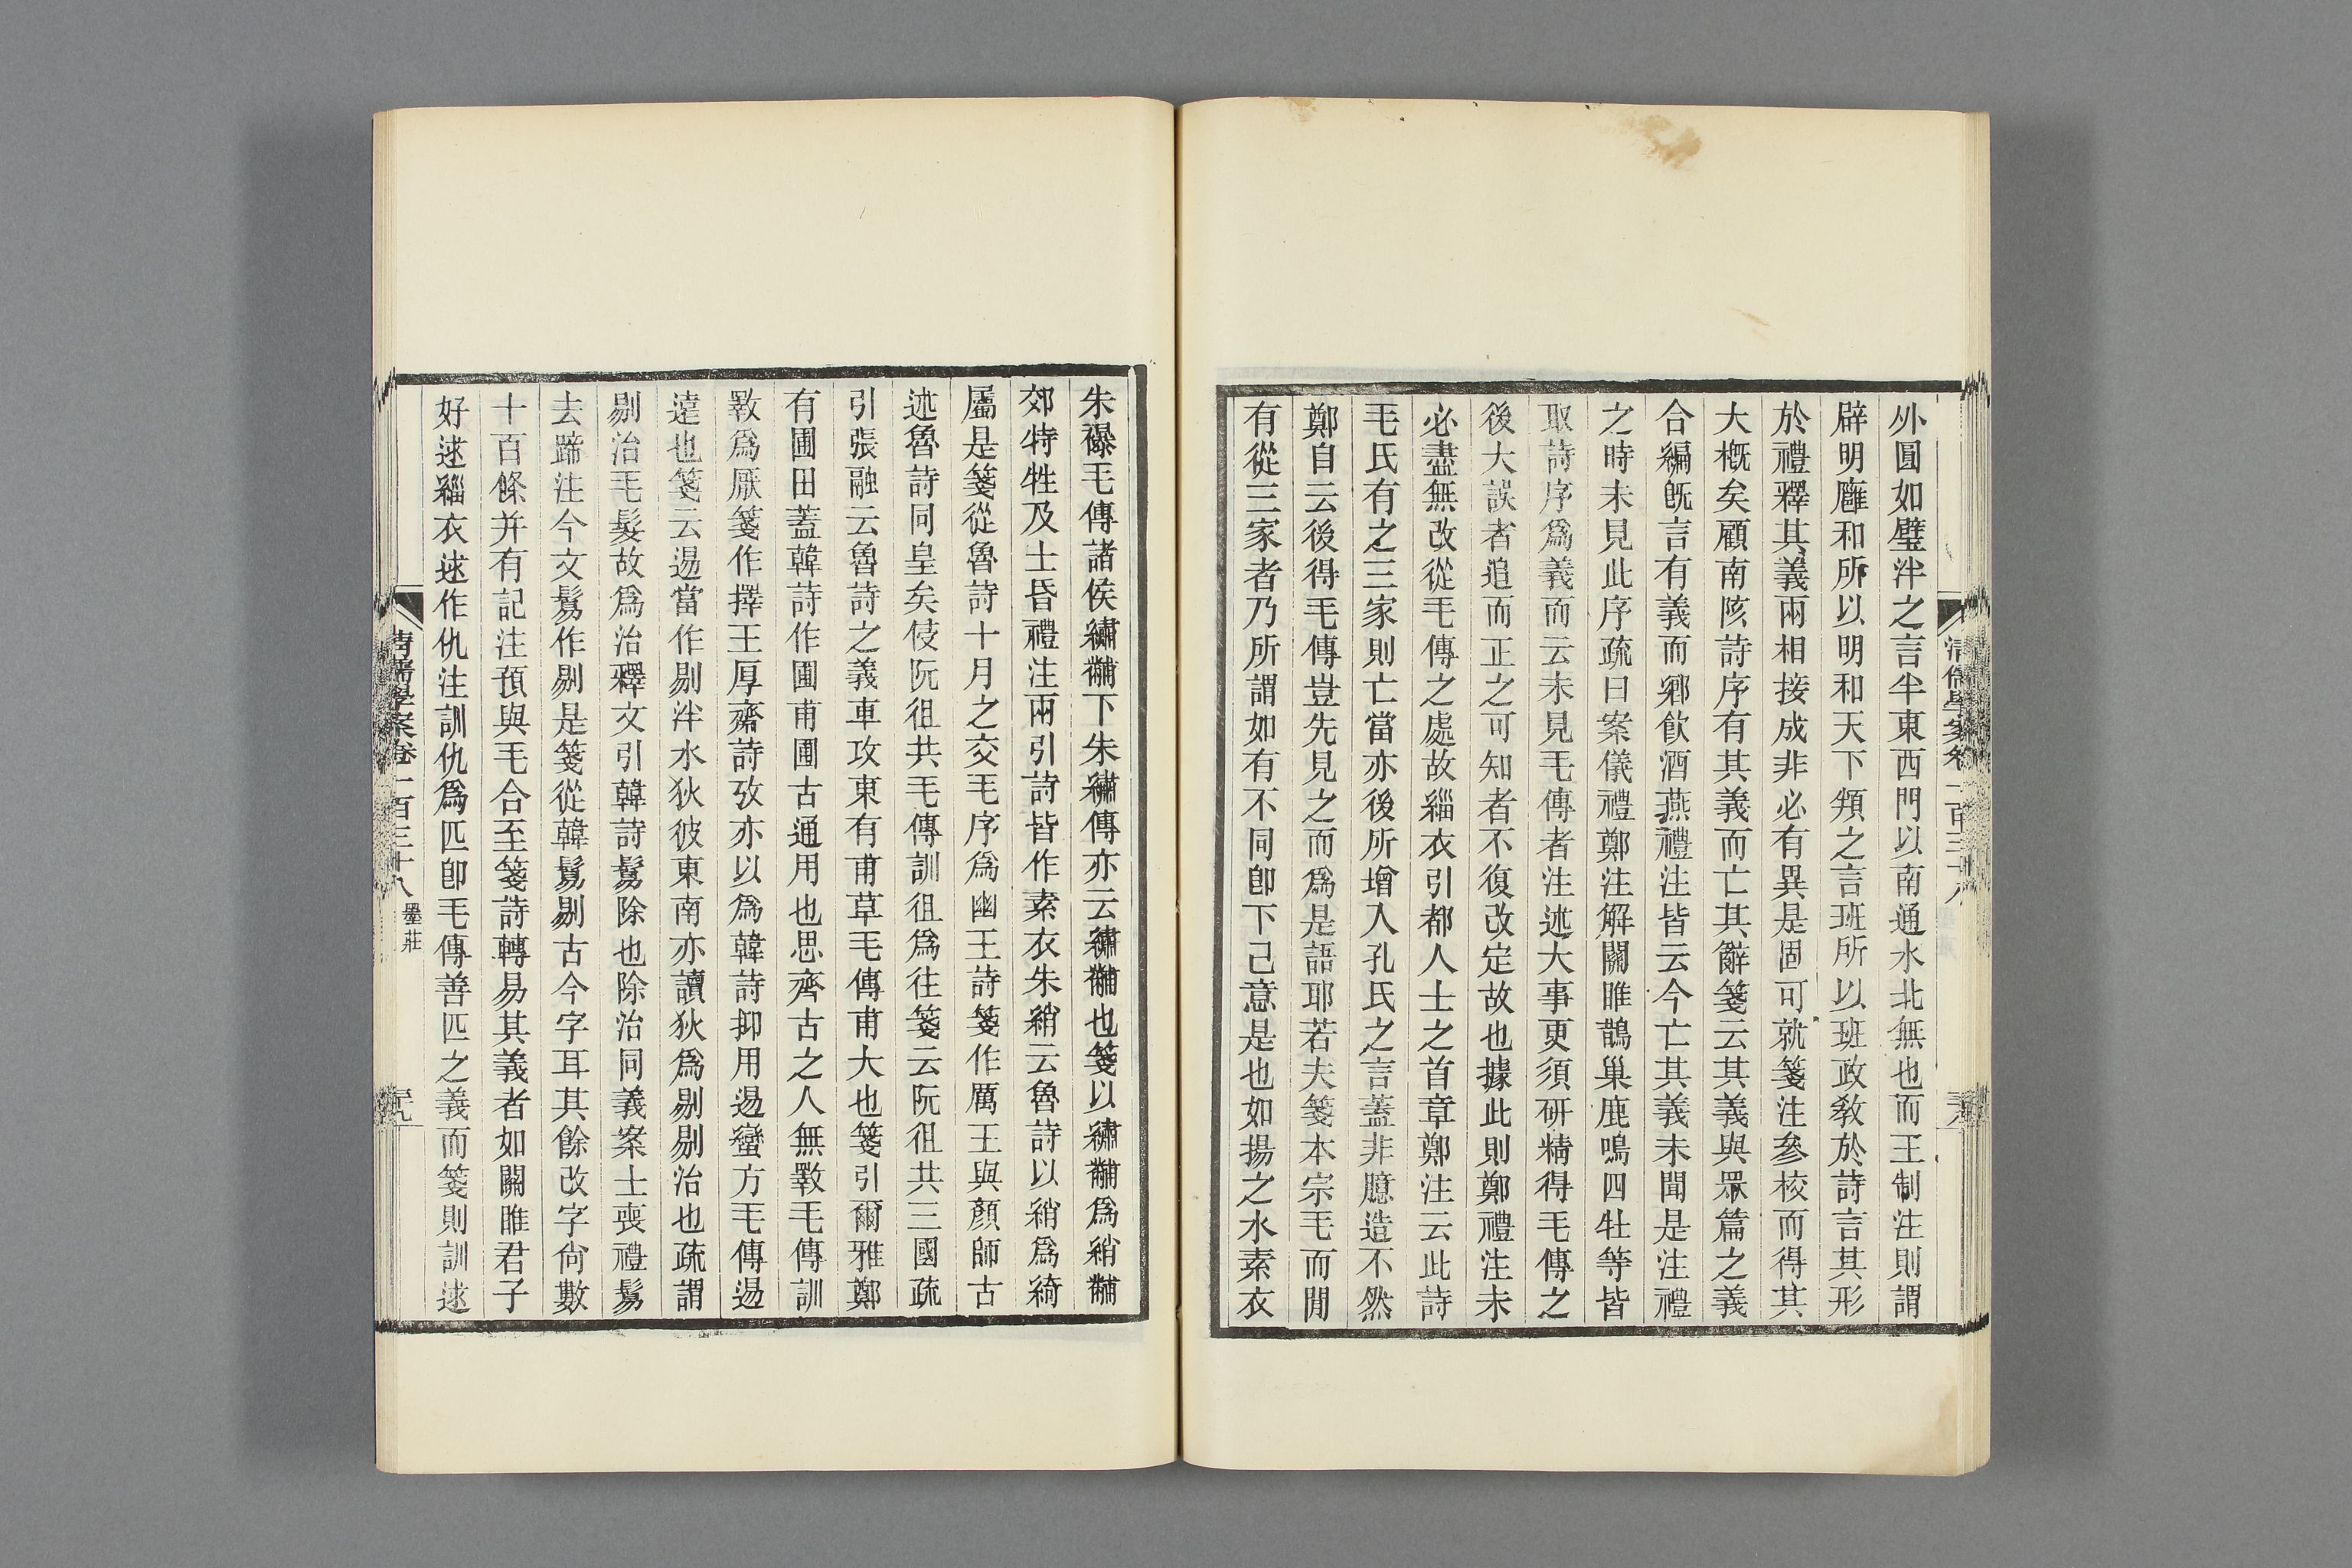 外圓如璧泮之言半東西門以南通水北無也而王制注則謂
辟明廱和所以明和天下頖之言班所以班政教於詩言其形
於禮釋其義兩相接成非必有異是固可就箋注參校而得其
大概矣顧南陔詩序有其義而亡其辭箋云其義與眾篇之義
合編旣言有義而鄉飮酒燕禮注皆云今亡其義未聞是注禮
之時未見此序疏曰案儀禮鄭注解關雎鵲巢鹿鳴四牡等皆
取詩序爲義而云未見毛傳者注述大事更須研精得毛傳之
後大誤者追而正之可知者不復改定故也據此則鄭禮注未
必盡無改從毛傳之處故緇衣引都人士之首章鄭注云此詩
毛氏有之三家則亡當亦後所增入孔氏之言蓋非臆造不然
鄭自云後得毛傳豈先見之而爲是語耶若夫箋本宗毛而閒
有從三家者乃所謂如有不同卽下己意是也如揚之水素衣
朱襮毛傳諸侯繡黼下朱繡傳亦云繡黼也箋以繡黼爲綃黼
郊特牲及士昏禮注兩引詩皆作素衣朱綃云魯詩以綃爲綺
屬是箋從魯詩十月之交毛序爲幽王詩箋作厲王與顏師古
述魯詩同皇矣侵阮徂共毛傳訓徂爲往箋云阮徂共三國疏
引張融云魯詩之義車攻東有甫草毛傳甫大也箋引爾雅鄭
有圃田蓋韓詩作圃甫圃古通用也思齊古之人無斁毛傳訓
斁爲厭箋作擇王厚齋詩攷亦以爲韓詩抑用逷蠻方毛傳逷
遠也箋云逷當作剔泮水狄彼東南亦讀狄爲剔剔治也疏謂
剔治毛髮故爲治釋文引韓詩鬄除也除治同義案士喪禮鬄
去蹄注今文鬄作剔是箋從韓鬄剔古今字耳其餘改字尙數
十百條并有記注預與毛合至箋詩轉易其義者如關雎君子
好逑緇衣逑作仇注訓仇爲匹卽毛傳善匹之義而箋則訓逑
清儒學案卷一百三十八 墨莊